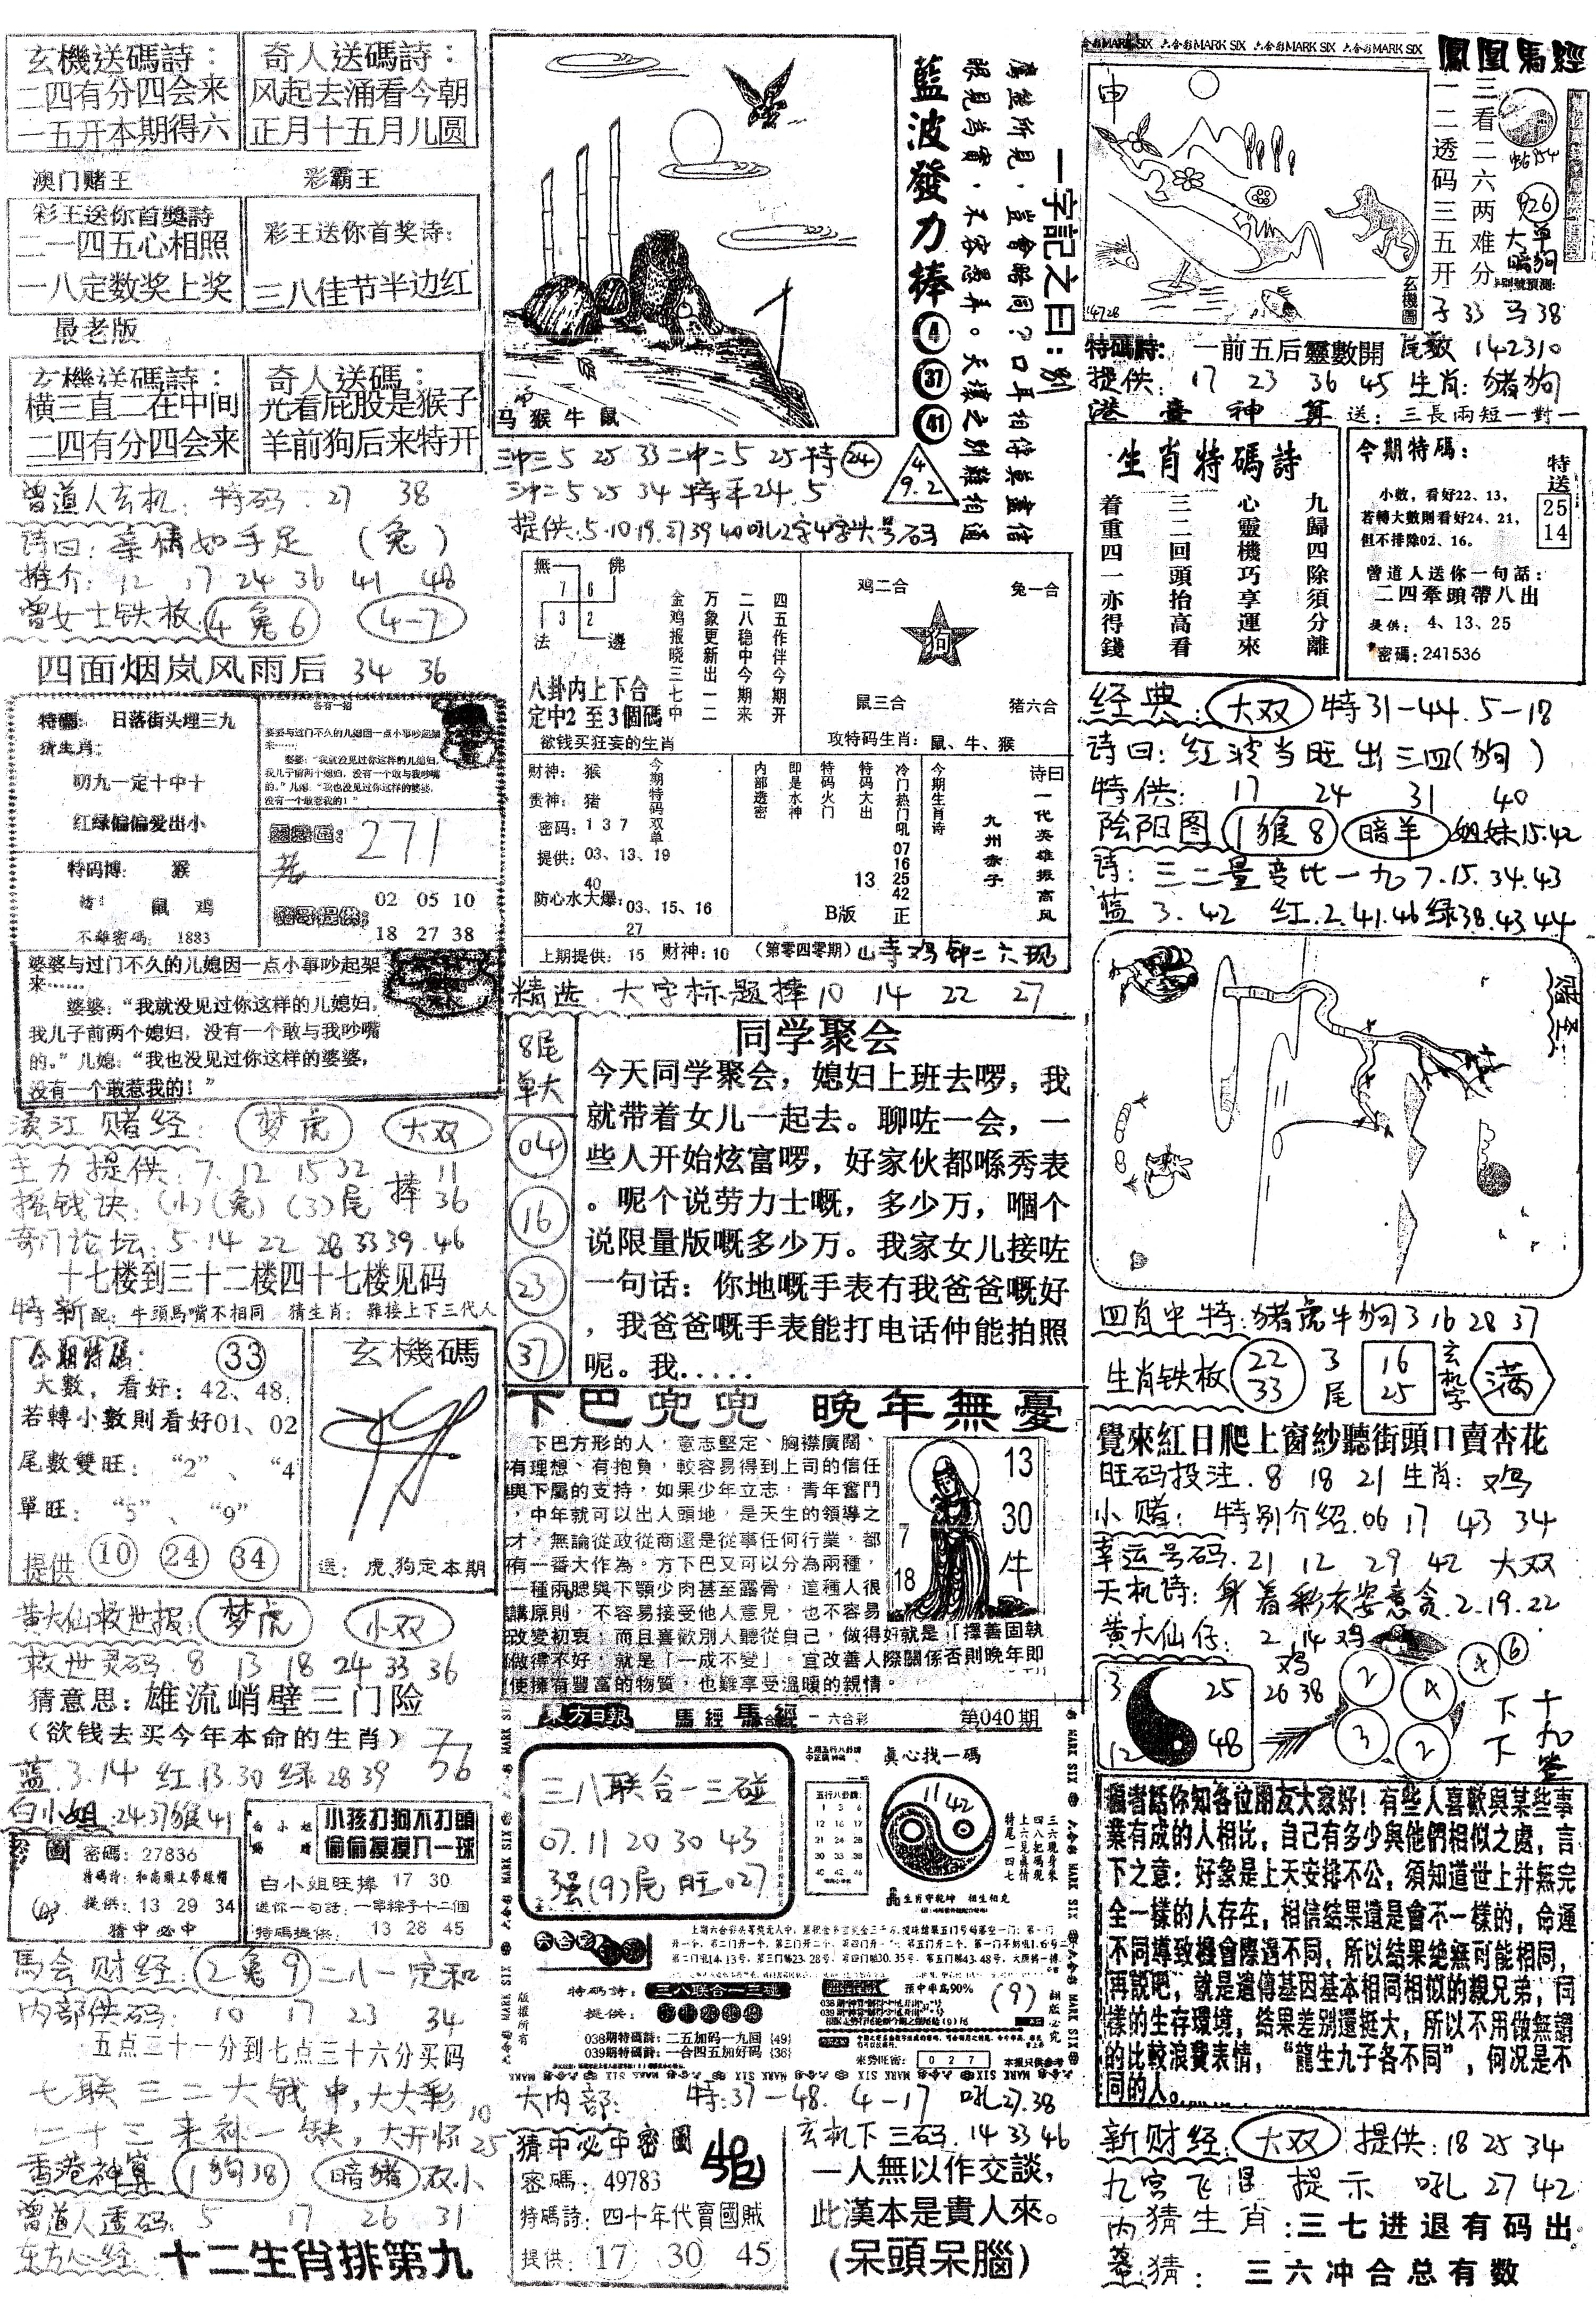 玄機送碼詩：
二四有分四会来
一五开本期得六
奇人送碼詩：
风起去涌看今朝
正月十五月儿圆
澳门赌王
彩霸王
彩王送你首獎詩
二一四五心相照
一八定数奖上奖
彩王送你首奖诗：
三八佳节半边红
最老版
玄機送碼詩：
横三直二在中间
二四有分四会来
奇人送碼：
光看屁股是猴子
羊前狗后来特开
曾道人玄机：特码 27 38
诗曰：亲情如手足（兔）
推介：12 17 24 36 41 48
曾女士铁板 4兔6 4-7
四面烟岚风雨后 34 36
特碼： 日落街头埋三九
猜生肖：
明九一定十中十
红绿偏偏爱出小
特码博： 猴
鼠 鸡
不離密碼：1883
271
02 05 10
18 27 38
婆婆与过门不久的儿媳因一点小事吵起架
来……
婆婆：“我就没见过你这样的儿媳妇，
我儿子前两个媳妇，没有一个敢与我吵嘴
的。”儿媳：“我也没见过你这样的婆婆，
没有一个敢惹我的！”
濠江赌经： 梦虎 大双
主力提供：7. 12 15 32 捧 11
摇钱诀：(小)(兔)(3)尾 36
奇门论坛：5 14 22 28 33 39 46
十七楼到三十二楼四十七楼见码
特新配：牛頭馬嘴不相同 猜生肖：難接上下三代人
今期特碼： 33
大數，看好：42、48，
若轉小數則看好01、02
尾數雙旺：“2”、“4
單旺：“5”、“9”
提供 10 24 34
玄機碼
送：虎、狗定本期
黄大仙救世报： 梦虎 小双
救世灵码 8 13 18 24 33 36
猜意思：雄流峭壁三门险
（欲钱去买今年本命的生肖）
蓝.3.14 红.13.30 绿28 39
白小姐.24.37猴41
圖 密碼：27836
特碼詩：和尚頭上帶綠帽
提供：13 29 34
猜中必中
小孩打狗不打頭
偷偷摸摸刀一球
白小姐旺捧 17 30
送你一句話：一串粽子十二個
特碼提供： 13 28 45
馬会财经： 2兔9 二八一定和
内部供码： 10 17 23 34
五点二十一分到七点三十六分买码
七联三二大钱中，大大彩
二十三来补一缺，大开怀
10
25
香港神算 1狗38 暗猪 双小
曾道人透码： 5 17 26 31
东方心经 十二生肖排第九
马 猴 牛 鼠
藍波發力捧 4 37 41
一字記之曰：别
三中三 5 25 33 二中二 5 25 特 24
三中二 5 25 34 特平24.5
4
9.2
提供：5.10.19.27 39 40吼2字4字头号码
無 佛
7 6
3 2
法 邊
八卦内上下合
定中2 至3個碼
金鸡报晓三七中
万象更新出一二
二八稳中今期来
四五作伴今期开
欲钱买狂妄的生肖
鸡二合 兔一合
狗
鼠三合 猪六合
攻特码生肖：鼠、牛、猴
财神：猴
贵神：猪
密码：1 3 7
提供：03、13、19
40
防心水大爆：03、15、16
27
今期特码双单
内部透密
即是水神
特码火门
特码大出
13
B版
冷门热门吼 07 16 25 42 正
今期生肖诗
九州赤子
诗曰
一代英雄振高风
上期提供：15 财神：10 （第零四零期）山寺鸡钟二六现
精选：大字标题捧10 14 22 27
8尾
单大
04
16
23
37
同学聚会
今天同学聚会，媳妇上班去啰，我
就带着女儿一起去。聊咗一会，一
些人开始炫富啰，好家伙都喺秀表
。呢个说劳力士嘅，多少万，嗰个
说限量版嘅多少万。我家女儿接咗
一句话：你地嘅手表冇我爸爸嘅好
，我爸爸嘅手表能打电话仲能拍照
呢。我.....
下巴兜兜 晚年無憂
下巴方形的人，意志堅定、胸襟廣闊、
有理想、有抱負，較容易得到上司的信任
與下屬的支持，如果少年立志，青年奮鬥
，中年就可以出人頭地，是天生的領導之
才，無論從政從商還是從事任何行業，都
有一番大作為。方下巴又可以分為兩種，
一種兩腮與下顎少肉甚至露骨，這種人很
講原則，不容易接受他人意見，也不容易
改變初衷；而且喜歡別人聽從自己，做得好就是「擇善固執
做得不好，就是「一成不變」。宜改善人際關係否則晚年即
使擁有豐富的物質，也難享受溫暖的親情。
13
30
牛
7
18
東方日報 馬經 六合彩 第040期
三八联合一三碰
07.11 20 30 43
强(9)尾旺027
真心找一碼
11 42
五行八卦牌
三六現身來
四八把碼現
上六見真情
特尾一四七
生肖守乾坤 相生相克
特碼詩：三八联合一三碰
提供：
038期特碼詩：二五加码一九回 {49}
039期特碼詩：一合四五加好码 {38}
預中率高90%
(9)
版權所有
翻版必究
來勢旺密： 0 2 7 本报只供参考
大内部： 特：37-48. 4-17 吼27.38
猜中必中密圖
密碼：49783
特碼詩：四十年代賣國賊
提供：17 30 45
玄机下三码.14 33 46
一人無以作交談，
此漢本是貴人來。
(呆頭呆腦)
六合彩MARK SIX 六合彩MARK SIX 六合彩MARK SIX
鳳凰馬經
申
玄機圖
14728
一二透码三五开
三看二六两难分
兔26
大单
暗狗
子33 马38
特碼詩： 一前五后靈數開 尾数 142310
提供： 17 23 36 45 生肖：猪狗
港臺神算 送：三長兩短一對一
生肖特碼詩
九歸四除須分離
心靈機巧享運來
三二回頭抬高看
着重四一亦得錢
今期特碼：
小數，看好22、13，
若轉大數則看好24、21，
但不排除02、16。
特送
25
14
曾道人送你一句話：
二四牽頭帶八出
提供： 4、13、25
密碼：241536
经典： 大双 特31-44.5-18
诗曰：红波当旺出三四(狗)
特供： 17 24 31 40
阴阳图 1猴8 暗羊 姐妹15.42
诗：三二量变比一九7.15.34.43
蓝 3.42 红.2.41.46绿38.43.44
赌圣
四肖中特：猪虎牛狗3 16 28 37
生肖铁板 22 33 3尾 16 25 玄机字 满
覺來紅日爬上窗紗聽街頭口賣杏花
旺码投注.8 18 21 生肖：鸡
小赌： 特别介绍.06 17 43 34
幸运号码.21 12 29 42 大双
天机诗：身着彩衣姿意贪.2.19.22
黄大仙仔：2.14鸡
3 25
12 48
鸡
26 38
2 4 4 6
3 2
下下
十九签
瘋者話你知各位朋友大家好！有些人喜歡與某些事
業有成的人相比，自己有多少與他們相似之處，言
下之意：好象是上天安排不公，須知道世上并無完
全一樣的人存在，相信結果還是會不一樣的，命運
不同導致機會際遇不同，所以結果絶無可能相同，
再説吧，就是遺傳基因基本相同相似的親兄弟，同
樣的生存環境，結果差别還挺大，所以不用做無謂
的比較浪費表情，“龍生九子各不同”，何況是不
同的人。
新财经： 大双 提供：18 25 34
九宫飞星 提示 吼 27 42
内猜生肖：三七进退有码出。
猜： 三六冲合总有数